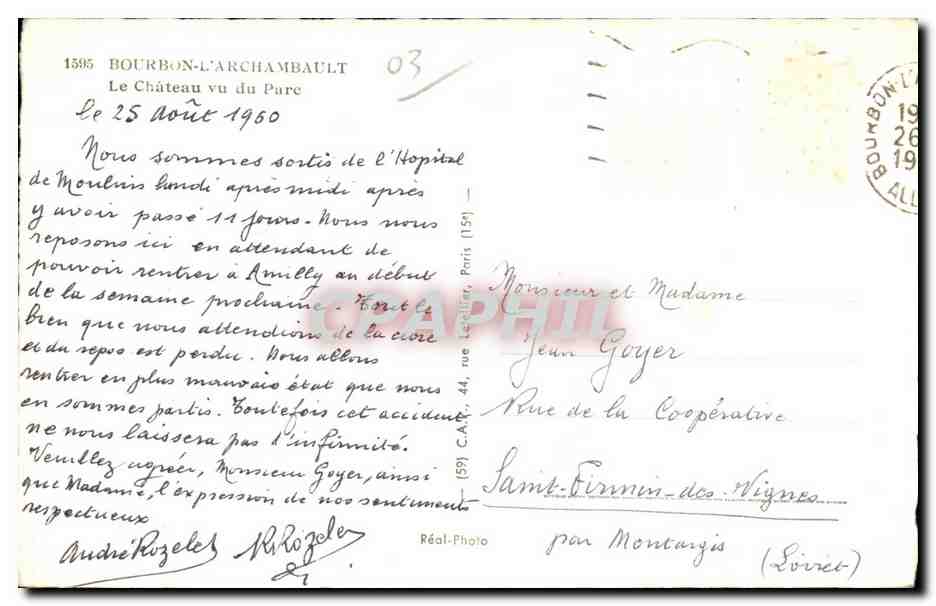 1595 BOURBON-L'ARCHAMBAULT
Le Château vu du Parc
03
le 25 Août 1960
Nous sommes sortis de l'Hopital
de Moulins lundi après midi après
y avoir passé 11 jours. Nous nous
reposons ici en attendant de
pouvoir rentrer à Amilly au début
de la semaine prochaine. Tout le
bien que nous attendions de la cure
et du repos est perdu. Nous allons
rentrer en plus mauvais état que nous
en sommes partis. Toutefois cet accident
ne nous laissera pas d'infirmité.
Veuillez agréer, Monsieur Goyer, ainsi
que Madame, l'expression de nos sentiments
respectueux
André Rozelet
(59) C.A.P., 44, rue Letellier, Paris (15e) —
Réal-Photo
CPAPHIL
BOURBON-L'A
19
26
19
ALL
Monsieur et Madame
Jean Goyer
Rue de la Coopérative
Saint-Firmin-des-Vignes
par Montargis
(Loiret)